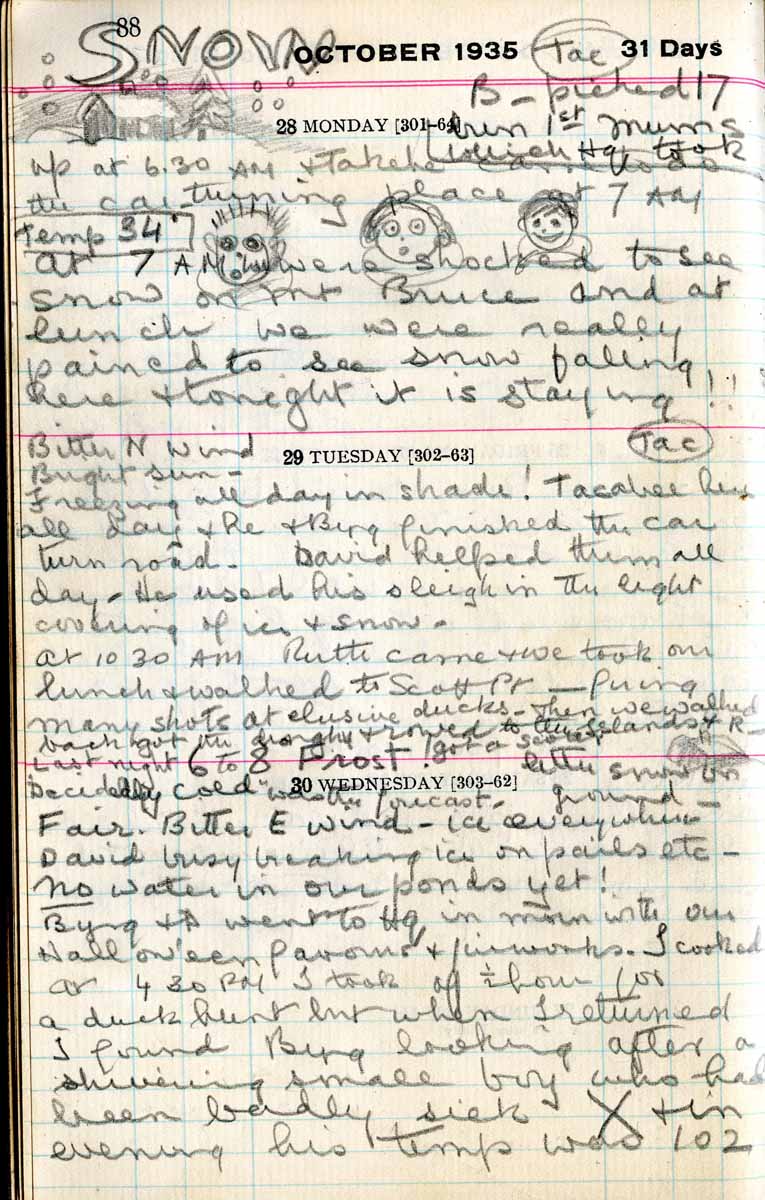 88
SNOW
OCTOBER 1935 Tac 31 Days
B - picked 17
28 MONDAY [301-64]
bun 1st mums
which Hq took
up at 6.30 AM
the car turning place at 7 AM
Temp 34°
At 7 AM we were shocked to see
snow on Mt Bruce and at
lunch we were really
pained to see snow falling
here & tonight it is staying!!
Bitter N wind
29 TUESDAY [302-63]
Tac
Bright sun -
Freezing all day in shade! Tacabee here
all day & he & Byng finished the car
turn road. David helped them all
day - He used his sleigh in the light
covering of ice & snow.
At 10 30 AM Ruth came & we took our
lunch & walked to Scott Pt - firing
many shots at elusive ducks - then we walked
back got the dinghy & rowed to the islands & R -
got a scoter
Last night 6 to 8 Frost!
little snow on
30 WEDNESDAY [303-62]
Decidedly cold weather forecast.
ground -
Fair. Bitter E wind - ice everywhere
David busy breaking ice on pails etc -
No water in our ponds yet!
Byng & D went to Hq in morn with our
Hallow'een favours & fireworks. I cooked
at 4 30 PM I took off ½ hour for
a duck hunt but when I returned
I found Byng looking after a
shivering small boy who had
been badly sick X & in
evening his temp was 102